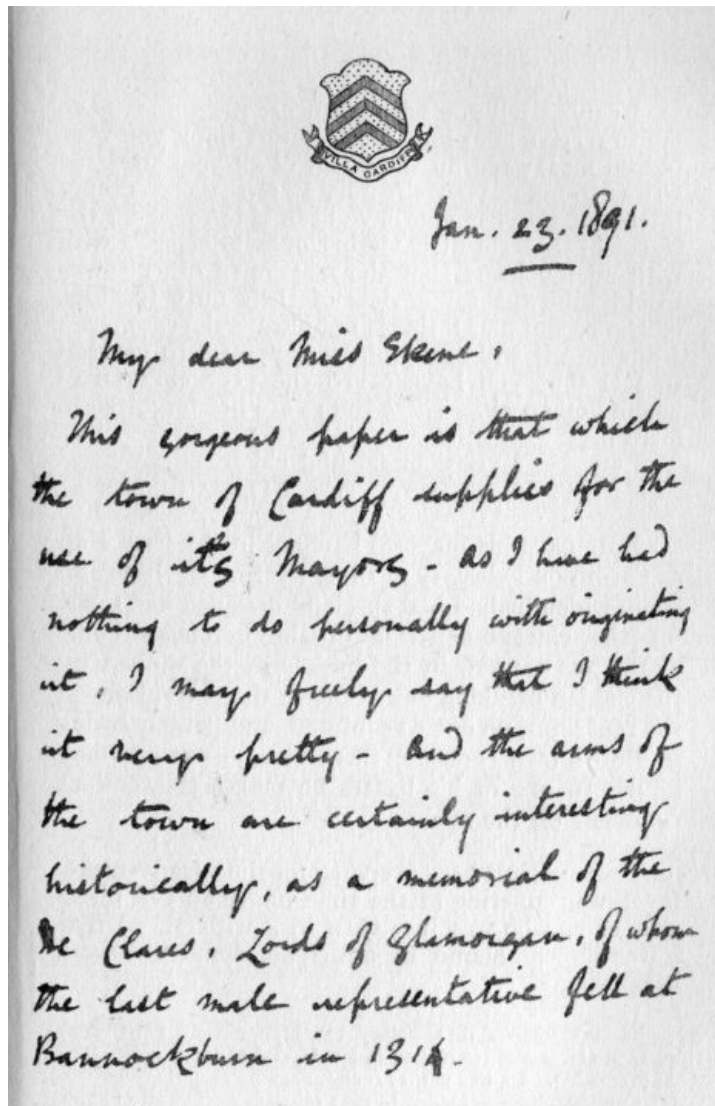 VILLA CARDIFF
Jan. 23. 1891.
My dear Miss Skene,
This gorgeous paper is that which
the town of Cardiff supplies for the
use of its Mayors - as I have had
nothing to do personally with originating
it, I may freely say that I think
it very pretty - and the arms of
the town are certainly interesting
historically, as a memorial of the
De Clares, Lords of Glamorgan, of whom
the last male representative fell at
Bannockburn in 1314.